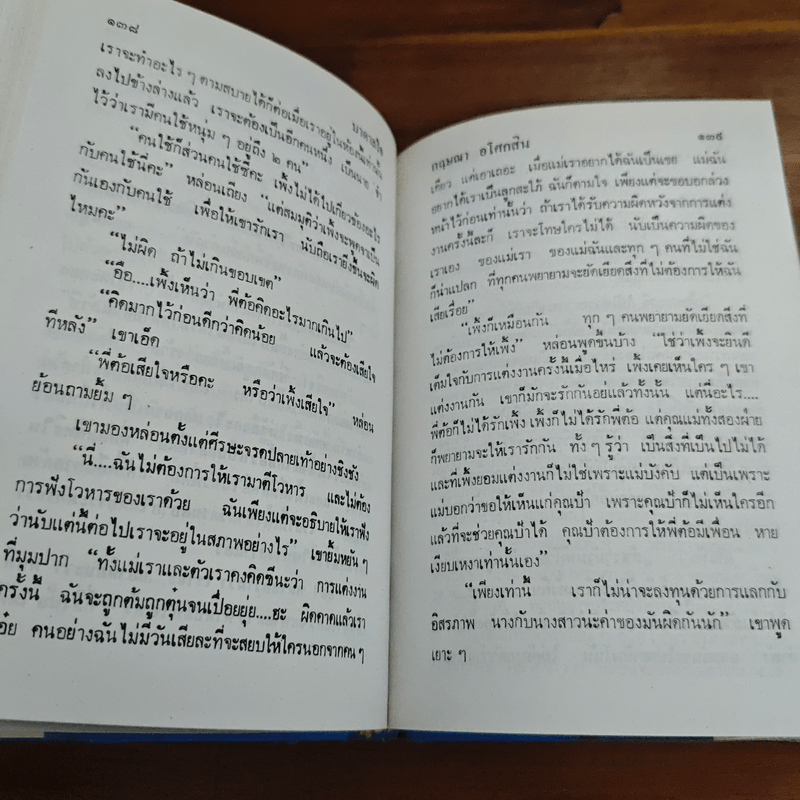 ๑๓๘
มาดามใจ
เราจะทำอะไร ๆ ตามสบายได้ก็ต่อเมื่อเราอยู่ในห้องนี้เท่านั้น
ลงไปข้างล่างแล้ว เราจะต้องเป็นอีกคนหนึ่ง เป็นนาย จำ
ไว้ว่าเรามีคนใช้หนุ่ม ๆ อยู่ถึง ๒ คน”
“คนใช้ก็ส่วนคนใช้ซีคะ เพิ้งไม่ได้ไปเกี่ยวข้องอะไร
กับคนใช้นี่คะ” หล่อนเถียง “แต่สมมุติว่าเพิ้งจะพูดจาเป็น
กันเองกับคนใช้ เพื่อให้เขารักเรา นับถือเรายิ่งขึ้นจะผิด
ไหมคะ”
“ไม่ผิด ถ้าไม่เกินขอบเขต”
“อือ....เพิ้งเห็นว่า พี่ต้อคิดอะไรมากเกินไป”
“คิดมากไว้ก่อนดีกว่าคิดน้อย แล้วจะต้องเสียใจ
ทีหลัง” เขาเอ็ด
“พี่ต้อเสียใจหรือคะ หรือว่าเพิ้งเสียใจ” หล่อน
ย้อนถามยิ้ม ๆ
เขามองหล่อนตั้งแต่ศีรษะจรดปลายเท้าอย่างชิงชัง
“นี่....ฉันไม่ต้องการให้เรามาตีโวหาร และไม่ต้อง
การฟังโวหารของเราด้วย ฉันเพียงแต่จะอธิบายให้เราฟัง
ว่านับแต่นี้ต่อไปเราจะอยู่ในสภาพอย่างไร” เขายิ้มหยัน ๆ
ที่มุมปาก “ทั้งแม่เราและตัวเราคงคิดซีนะว่า การแต่งงาน
ครั้งนี้ ฉันจะถูกต้มถูกตุ๋นจนเปื่อยยุ่ย....ฮะ ผิดคาดแล้วเรา
อ๋ย คนอย่างฉันไม่มีวันเสียละที่จะสยบให้ใครนอกจากคน ๆ
กฤษณา อโศกสิน
๑๓๙
เดียว แต่เอาเถอะ เมื่อแม่เราอยากได้ฉันเป็นเขย แม่ฉัน
อยากได้เราเป็นลูกสะใภ้ ฉันก็ตามใจ เพียงแต่จะขอบอกล่วง
หน้าไว้ก่อนเท่านั้นว่า ถ้าเราได้รับความผิดหวังจากการแต่ง
งานครั้งนี้ละก็ เราจะโทษใครไม่ได้ นับเป็นความผิดของ
เราเอง ของแม่เรา ของแม่ฉันและทุก ๆ คนที่ไม่ใช่ฉัน
ก็น่าแปลก ที่ทุกคนพยายามจะยัดเยียดสิ่งที่ไม่ต้องการให้ฉัน
เสียเรื่อย”
“เพิ้งก็เหมือนกัน ทุก ๆ คนพยายามยัดเยียดสิ่งที่
ไม่ต้องการให้เพิ้ง” หล่อนพูดขึ้นบ้าง “ใช่ว่าเพิ้งจะยินดี
เต็มใจกับการแต่งงานครั้งนี้เมื่อไหร่ เพิ้งเคยเห็นใคร ๆ เขา
แต่งงานกัน เขาก็มักจะรักกันอยู่แล้วทั้งนั้น แต่นี่อะไร....
พี่ต้อก็ไม่ได้รักเพิ้ง เพิ้งก็ไม่ได้รักพี่ต้อ แต่คุณแม่ทั้งสองฝ่าย
ก็พยายามจะให้เรารักกัน ทั้ง ๆ รู้ว่า เป็นสิ่งที่เป็นไปไม่ได้
และที่เพิ้งยอมแต่งงานก็ไม่ใช่เพราะแม่บังคับ แต่เป็นเพราะ
แม่บอกว่าขอให้เห็นแก่คุณป้า เพราะคุณป้าก็ไม่เห็นใครอีก
แล้วที่จะช่วยคุณป้าได้ คุณป้าต้องการให้พี่ต้อมีเพื่อน หาย
เงียบเหงาเท่านั้นเอง”
“เพียงเท่านี้ เราก็ไม่น่าจะลงทุนด้วยการแลกกับ
อิสรภาพ นางกับนางสาวน่ะค่าของมันผิดกันนัก” เขาพูด
เยาะ ๆ